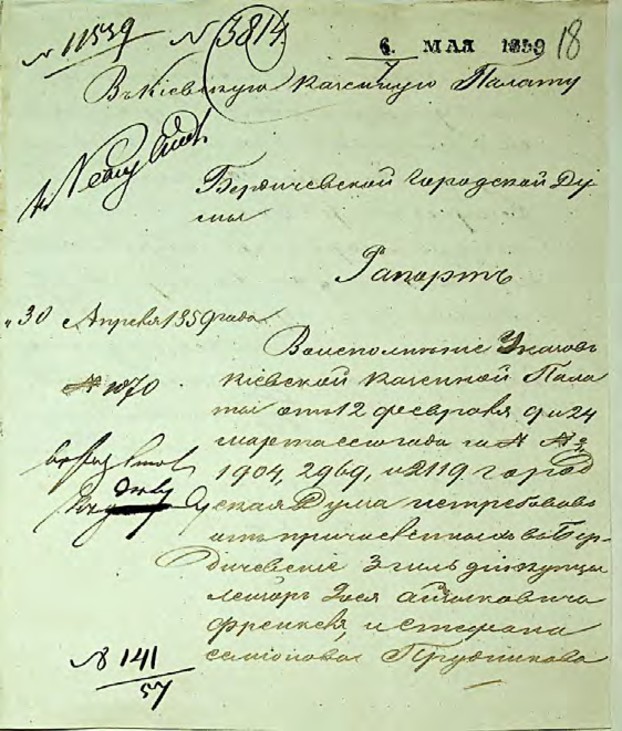 № 11539 № 3814 6 МАЯ 1859 18
Въ Кіевскую Казенную Палату
Бердичевской Городской Ду
мы
Рапортъ
"30 Апреля 1859 года
№ 1070
Воисполненіе Указовъ
Кіевской Казенной Пала
ты отъ 12 февраля 9 и 24
марта сего года за № №
1904, 2969, и 2119 город
ская Дума истребовавъ
отъ причисленныхъ въ Бер-
дичевскіе 3 гильдіи купцы
Френкеля, и Стефана
Семіонова Прудникова
№ 141
57